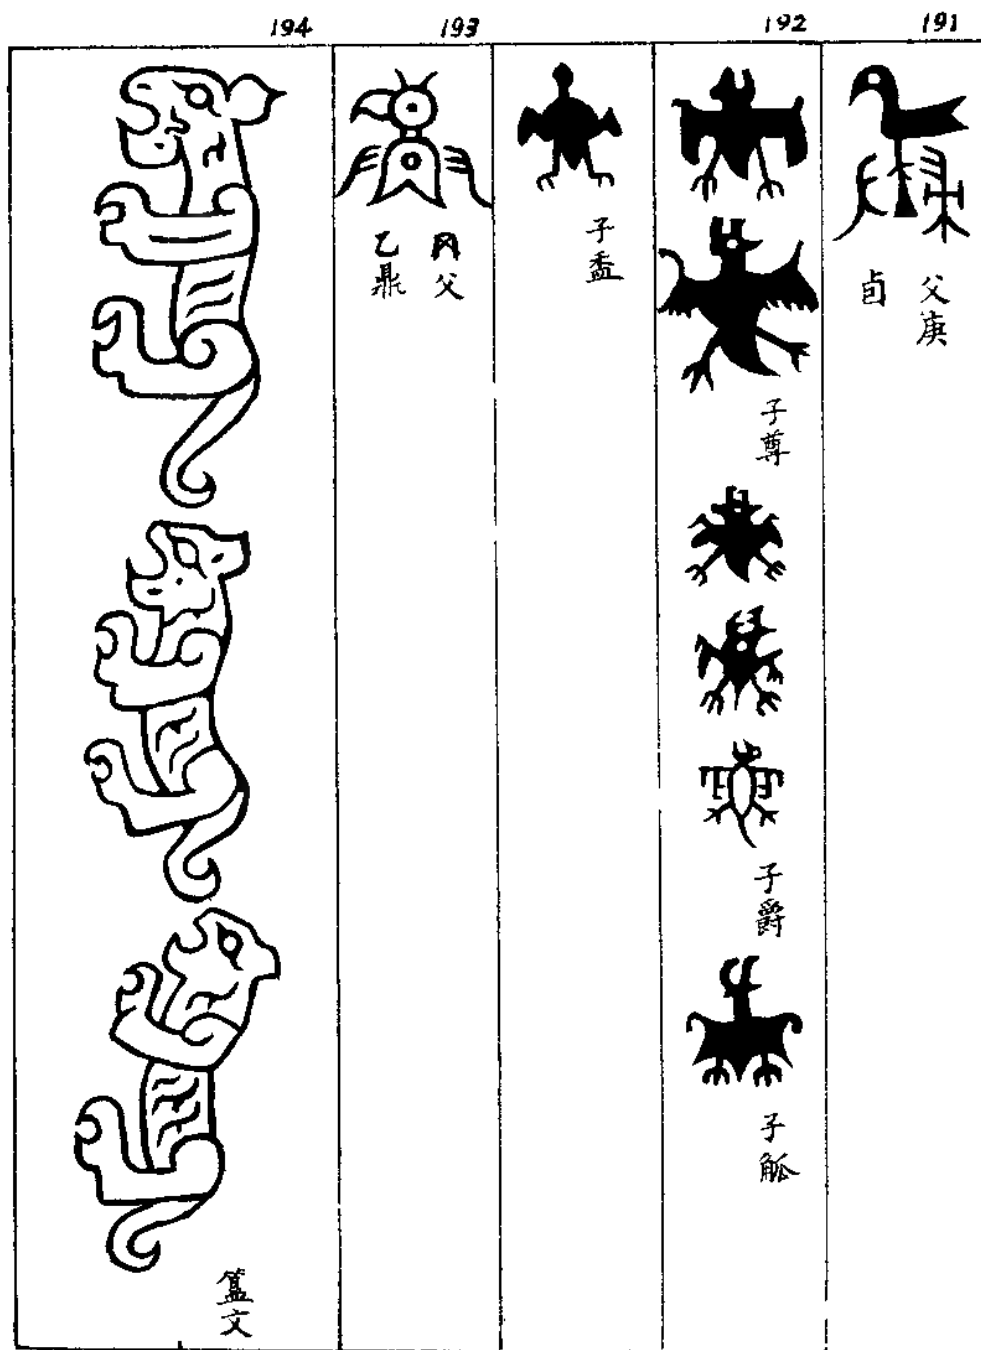 191
父庚
卣
192
子尊
子爵
子觚
子盉
193
父
乙鼎
194
簋文